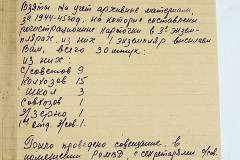 Взяты на учет архивные материалы,
за 1944-45 год, на которые составлены
регистрационные карточки в 3х экзем-
плярах, из них 1 экземпляр высылаем
Вам, всего 30 штук:
из них:
С/советов 9
Колхозов 15
Школ 3
Совхозов 1
1
с/сов. 1.
Было проведено совещание в
помещении РОМВД с секретарями с/сов.